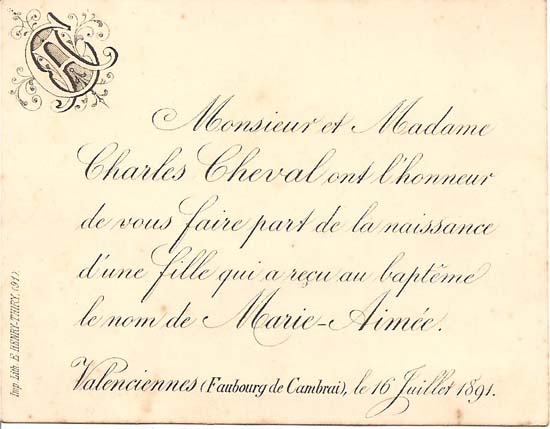 Monsieur et Madame
Charles Cheval ont l'honneur
de vous faire part de la naissance
d'une fille qui a reçu au baptême
le nom de Marie-Aimée.
Valenciennes (Faubourg de Cambrai), le 16 Juillet 1891.
Imp. Lith. E. HENRY-THIRY. (91).